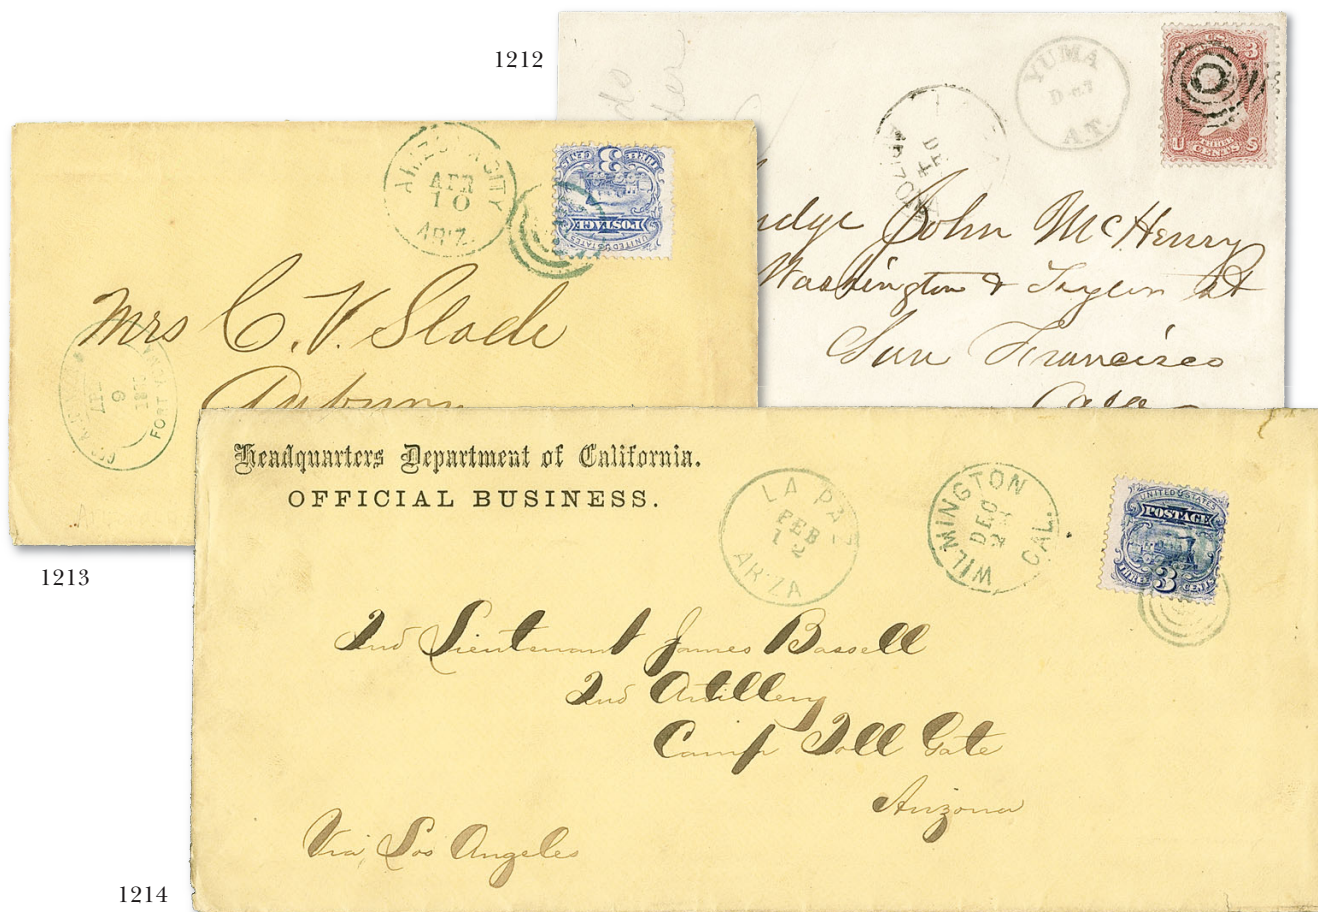 1212
YUMA
Dec 7
A.T.
3
U S
CENTS
Judge John McHenry
Washington & Taylor St
San Francisco
ARIZONA CITY
APR
10
ARIZ.
3
POSTAGE
UNITED STATES
Mrs C. V. Slade
Auburn
APR
9
FORT
1213
Headquarters Department of California.
OFFICIAL BUSINESS.
LA PAZ
FEB
12
AR'ZA
WILMINGTON
DEC
CAL.
UNITED STATES
POSTAGE
THREE 3 CENTS
2nd Lieutenant James Bassell
2nd Artillery
Camp Toll Gate
Arizona
Via Los Angeles
1214